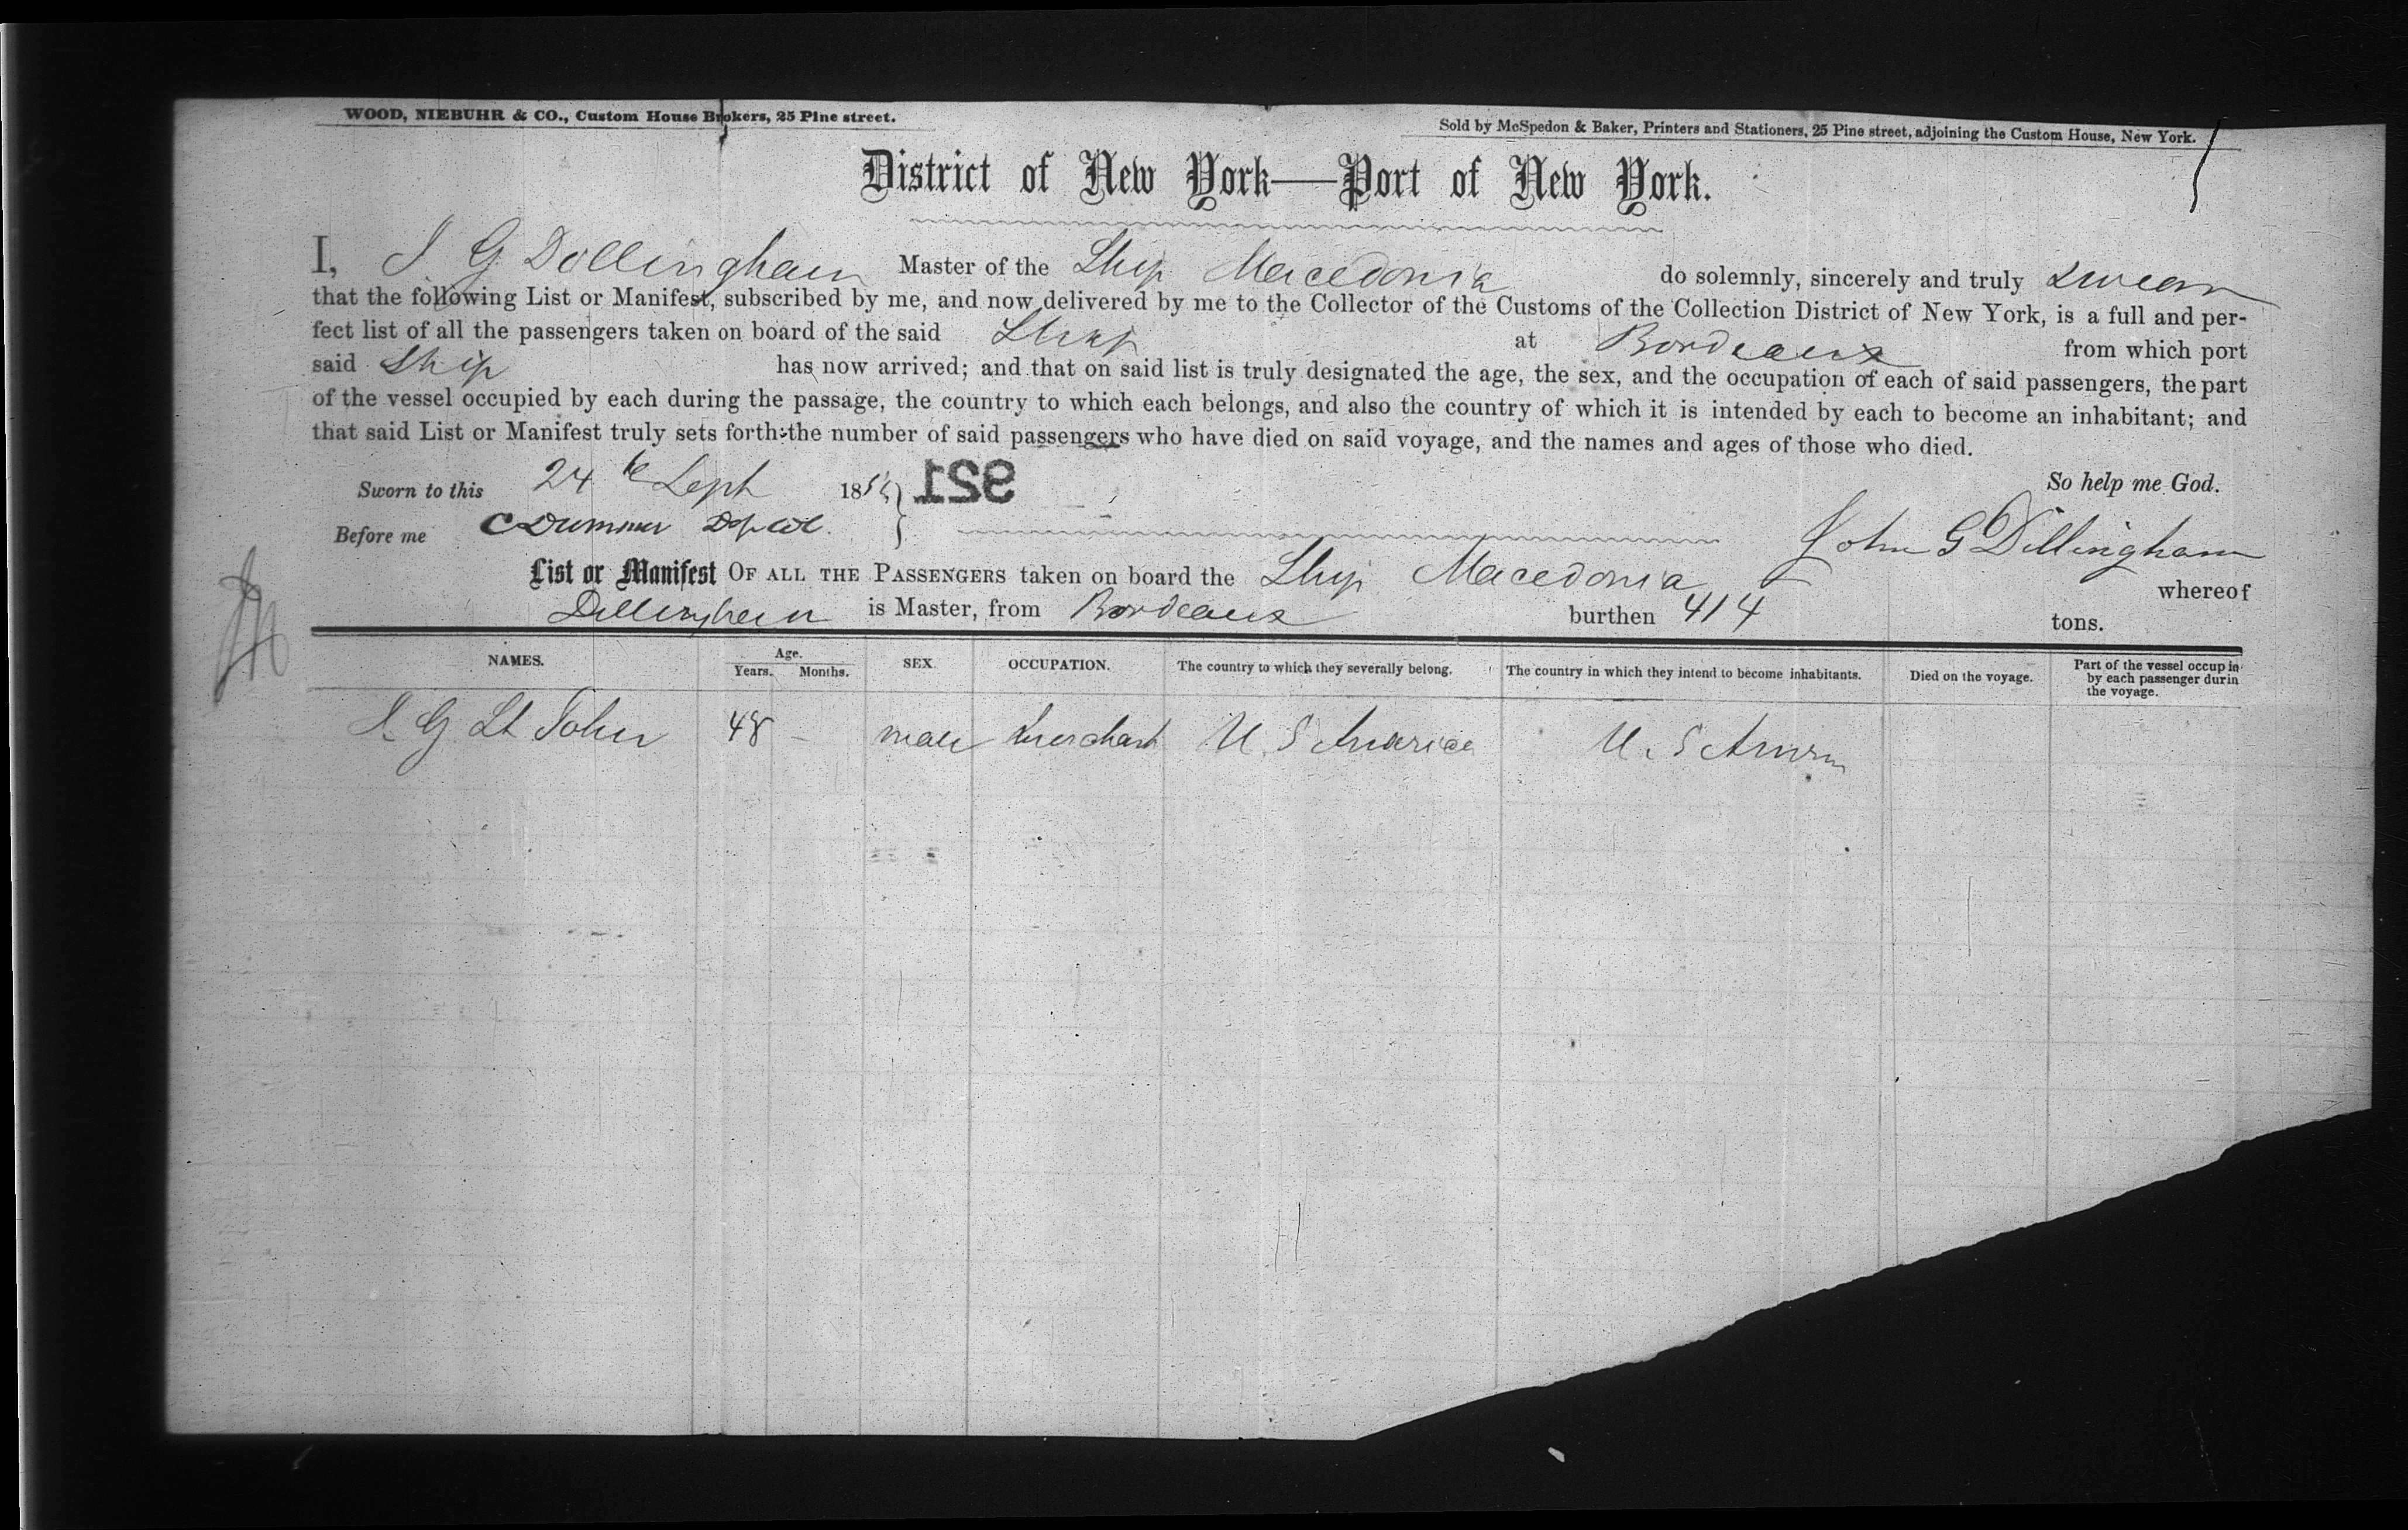 WOOD, NIEBUHR & CO., Custom House Brokers, 25 Pine street.
Sold by McSpedon & Baker, Printers and Stationers, 25 Pine street, adjoining the Custom House, New York.
District of New York—Port of New York.
I, J G Dillingham Master of the Ship Macedonia do solemnly, sincerely and truly swear
that the following List or Manifest, subscribed by me, and now delivered by me to the Collector of the Customs of the Collection District of New York, is a full and per-
fect list of all the passengers taken on board of the said Ship at Bordeaux from which port
said Ship has now arrived; and that on said list is truly designated the age, the sex, and the occupation of each of said passengers, the part
of the vessel occupied by each during the passage, the country to which each belongs, and also the country of which it is intended by each to become an inhabitant; and
that said List or Manifest truly sets forth the number of said passengers who have died on said voyage, and the names and ages of those who died.
So help me God.
Sworn to this 24th Sept 185
921
Before me C Dummer Dep Col.
John G Dillingham
List or Manifest OF ALL THE PASSENGERS taken on board the Ship Macedonia whereof
Dillingham is Master, from Bordeaux burthen 414 tons.
NAMES. Age. Years. Months. SEX. OCCUPATION. The country to which they severally belong. The country in which they intend to become inhabitants. Died on the voyage. Part of the vessel occup in by each passenger durin the voyage.
G St John 48 - male Merchant U. S America U. S America